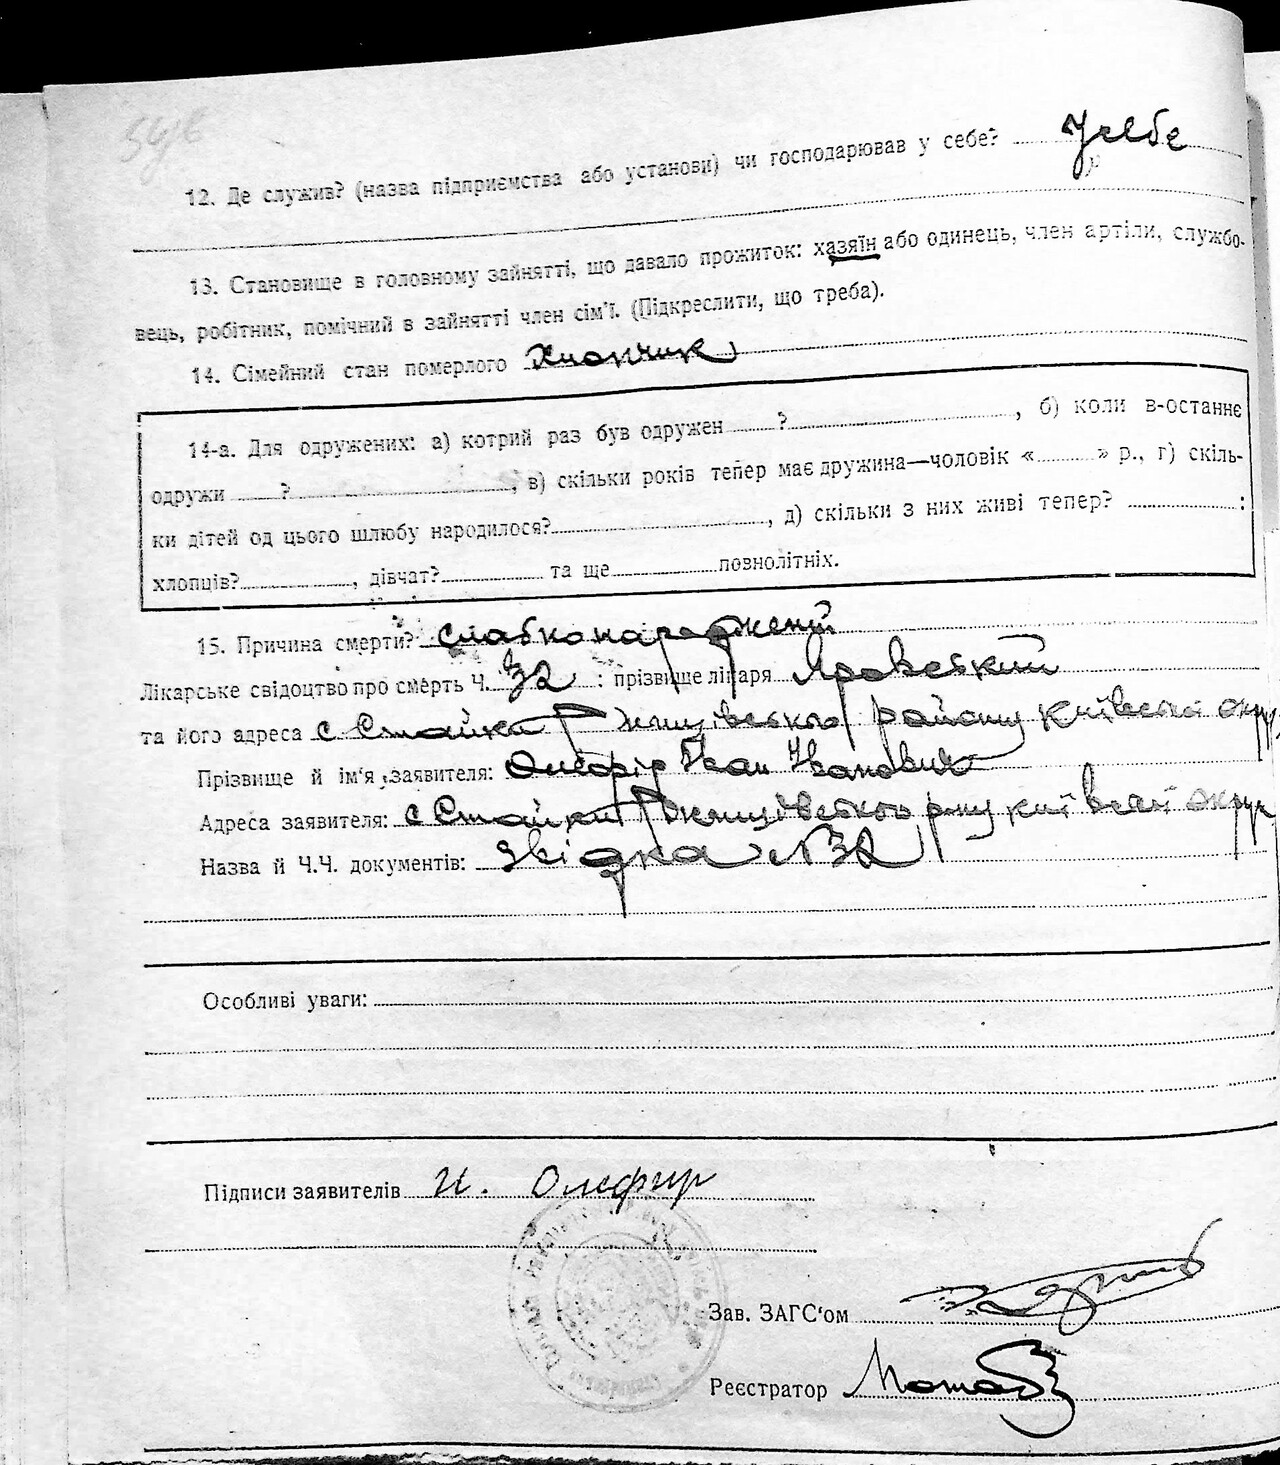 12. Де служив? (назва підприємства або установи) чи господарював у себе? У себе
13. Становище в головному зайнятті, що давало прожиток: хазяїн або одинець, член артіли, службо-
вець, робітник, помічний в зайнятті член сім'ї. (Підкреслити, що треба).
14. Сімейний стан померлого Хлопчик
14-а. Для одружених: а) котрий раз був одружен ? , б) коли в-останнє
одружи ? , в) скільки років тепер має дружина—чоловік « » р., г) скіль-
ки дітей од цього шлюбу народилося? , д) скільки з них живі тепер? :
хлопців? , дівчат? та ще повнолітніх.
15. Причина смерти? слабконароджений
Лікарське свідоцтво про смерть Ч. 32 : прізвище лікаря Яровський
та його адреса с Стайки Ржищівського району Київськой округ
Прізвище й ім'я заявителя: Олефір Іван Іванович
Адреса заявителя: с Стайки Ржищівського р-ну Київськой округ
Назва й Ч.Ч. документів: звідка №32
Особливі уваги:
Підписи заявителів И. Олефир
Зав. ЗАГС'ом
Реєстратор